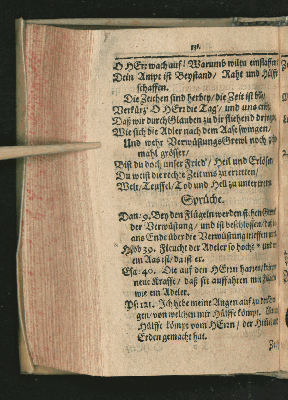 O HErr wach auf! Warumb wiltu einschlaffen
Dein Ampt ist Beystand/ Raht und Hülff
schaffen.
Die Zeichen sind herbey/ die Zeit ist
Verkürz O HErr die Tag/ und uns
Daß wir durch Glauben zu dir fliehend
Wie sich die Adler nach dem Aase schwingen/
Und wehr Verwüstungs Grewl noch
mahl grösser/
Bist du doch unser Fried/ Heil und Erlöser
Du weist die rechte Zeit uns zu erretten/
Welt/ Teuffel/ Tod und Hell zu untertreten
Sprüche.
Dan. 9. Bey den Flügeln werden stehen
der Verwüstung/ und ist beschlossen/
ans Ende über die Verwüstung
Hiob 39. Fleucht der Adeler so hoch
ein Aas ist/ da ist er.
Esa. 40. Die auf den HErrn
neue Kraffe/ daß sie auffahren mit
wie ein Adeler.
Ps. 121. Ich hebe meine Augen auf zu
gen/ von welchen mir Hülffe kömpt.
Hülffe kömpt vom HErrn/ der
Erden gemacht hat.